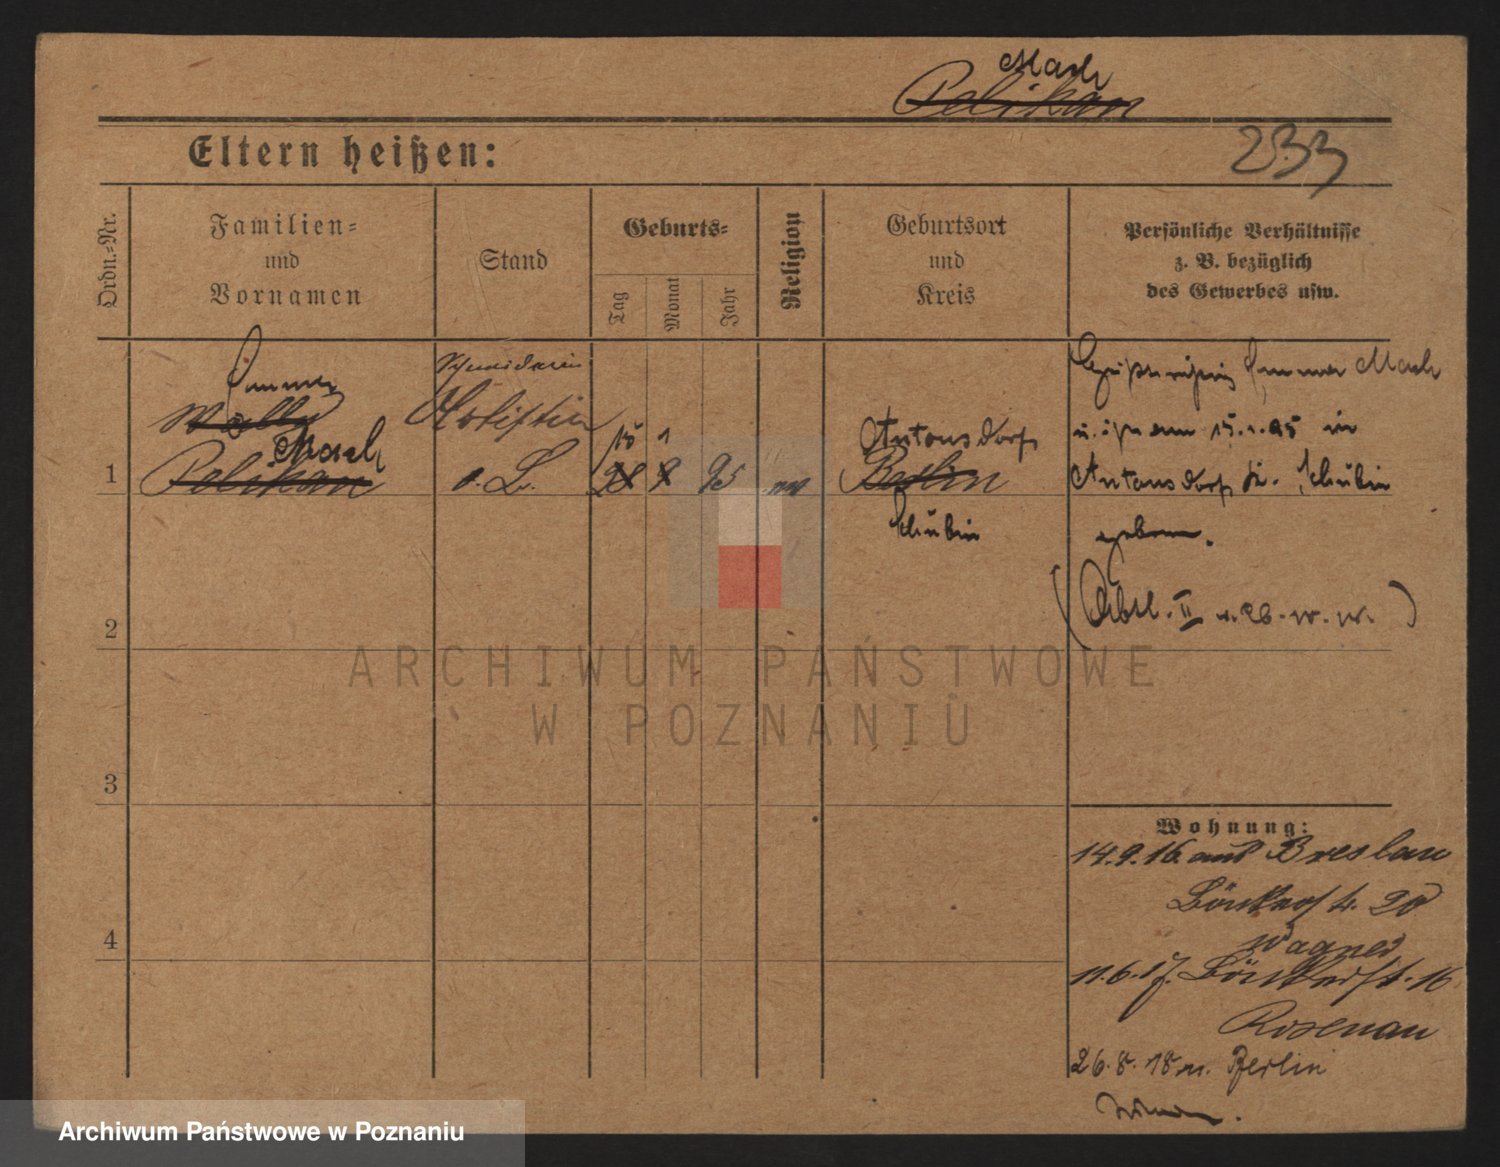 Mach
Pelikan
233
Eltern heißen:
Ordn.-Nr.
Familien-
und
Vornamen
Stand
Geburts-
Tag
Monat
Jahr
Religion
Geburtsort
und
Kreis
Persönliche Verhältnisse
z. B. bezüglich
des Gewerbes usw.
1
Wally
Mach
Pelikan
o. L.
15 1
95
Antonsdorf
Berlin
Schubin
Mach
u. ist am 15.1.95 in
Antonsdorf Kr. Schubin
geboren.
(Abtl. II
2
3
4
Wohnung:
14.9.16 aus Breslau
20
Wagner
11.6.17. 16
Rosenau
26.8.18 n. Berlin
ARCHIWUM PAŃSTWOWE
W POZNANIU
Archiwum Państwowe w Poznaniu